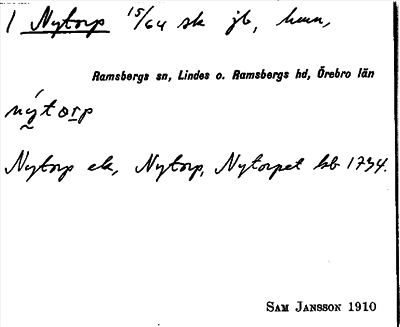 1 Nytorp 15/64 sk jb, hmn,
Ramsbergs sn, Lindes o. Ramsbergs hd, Örebro län
nýtorp
Nytorp ek, Nytorp, Nytorpet kb 1734.
SAM JANSSON 1910